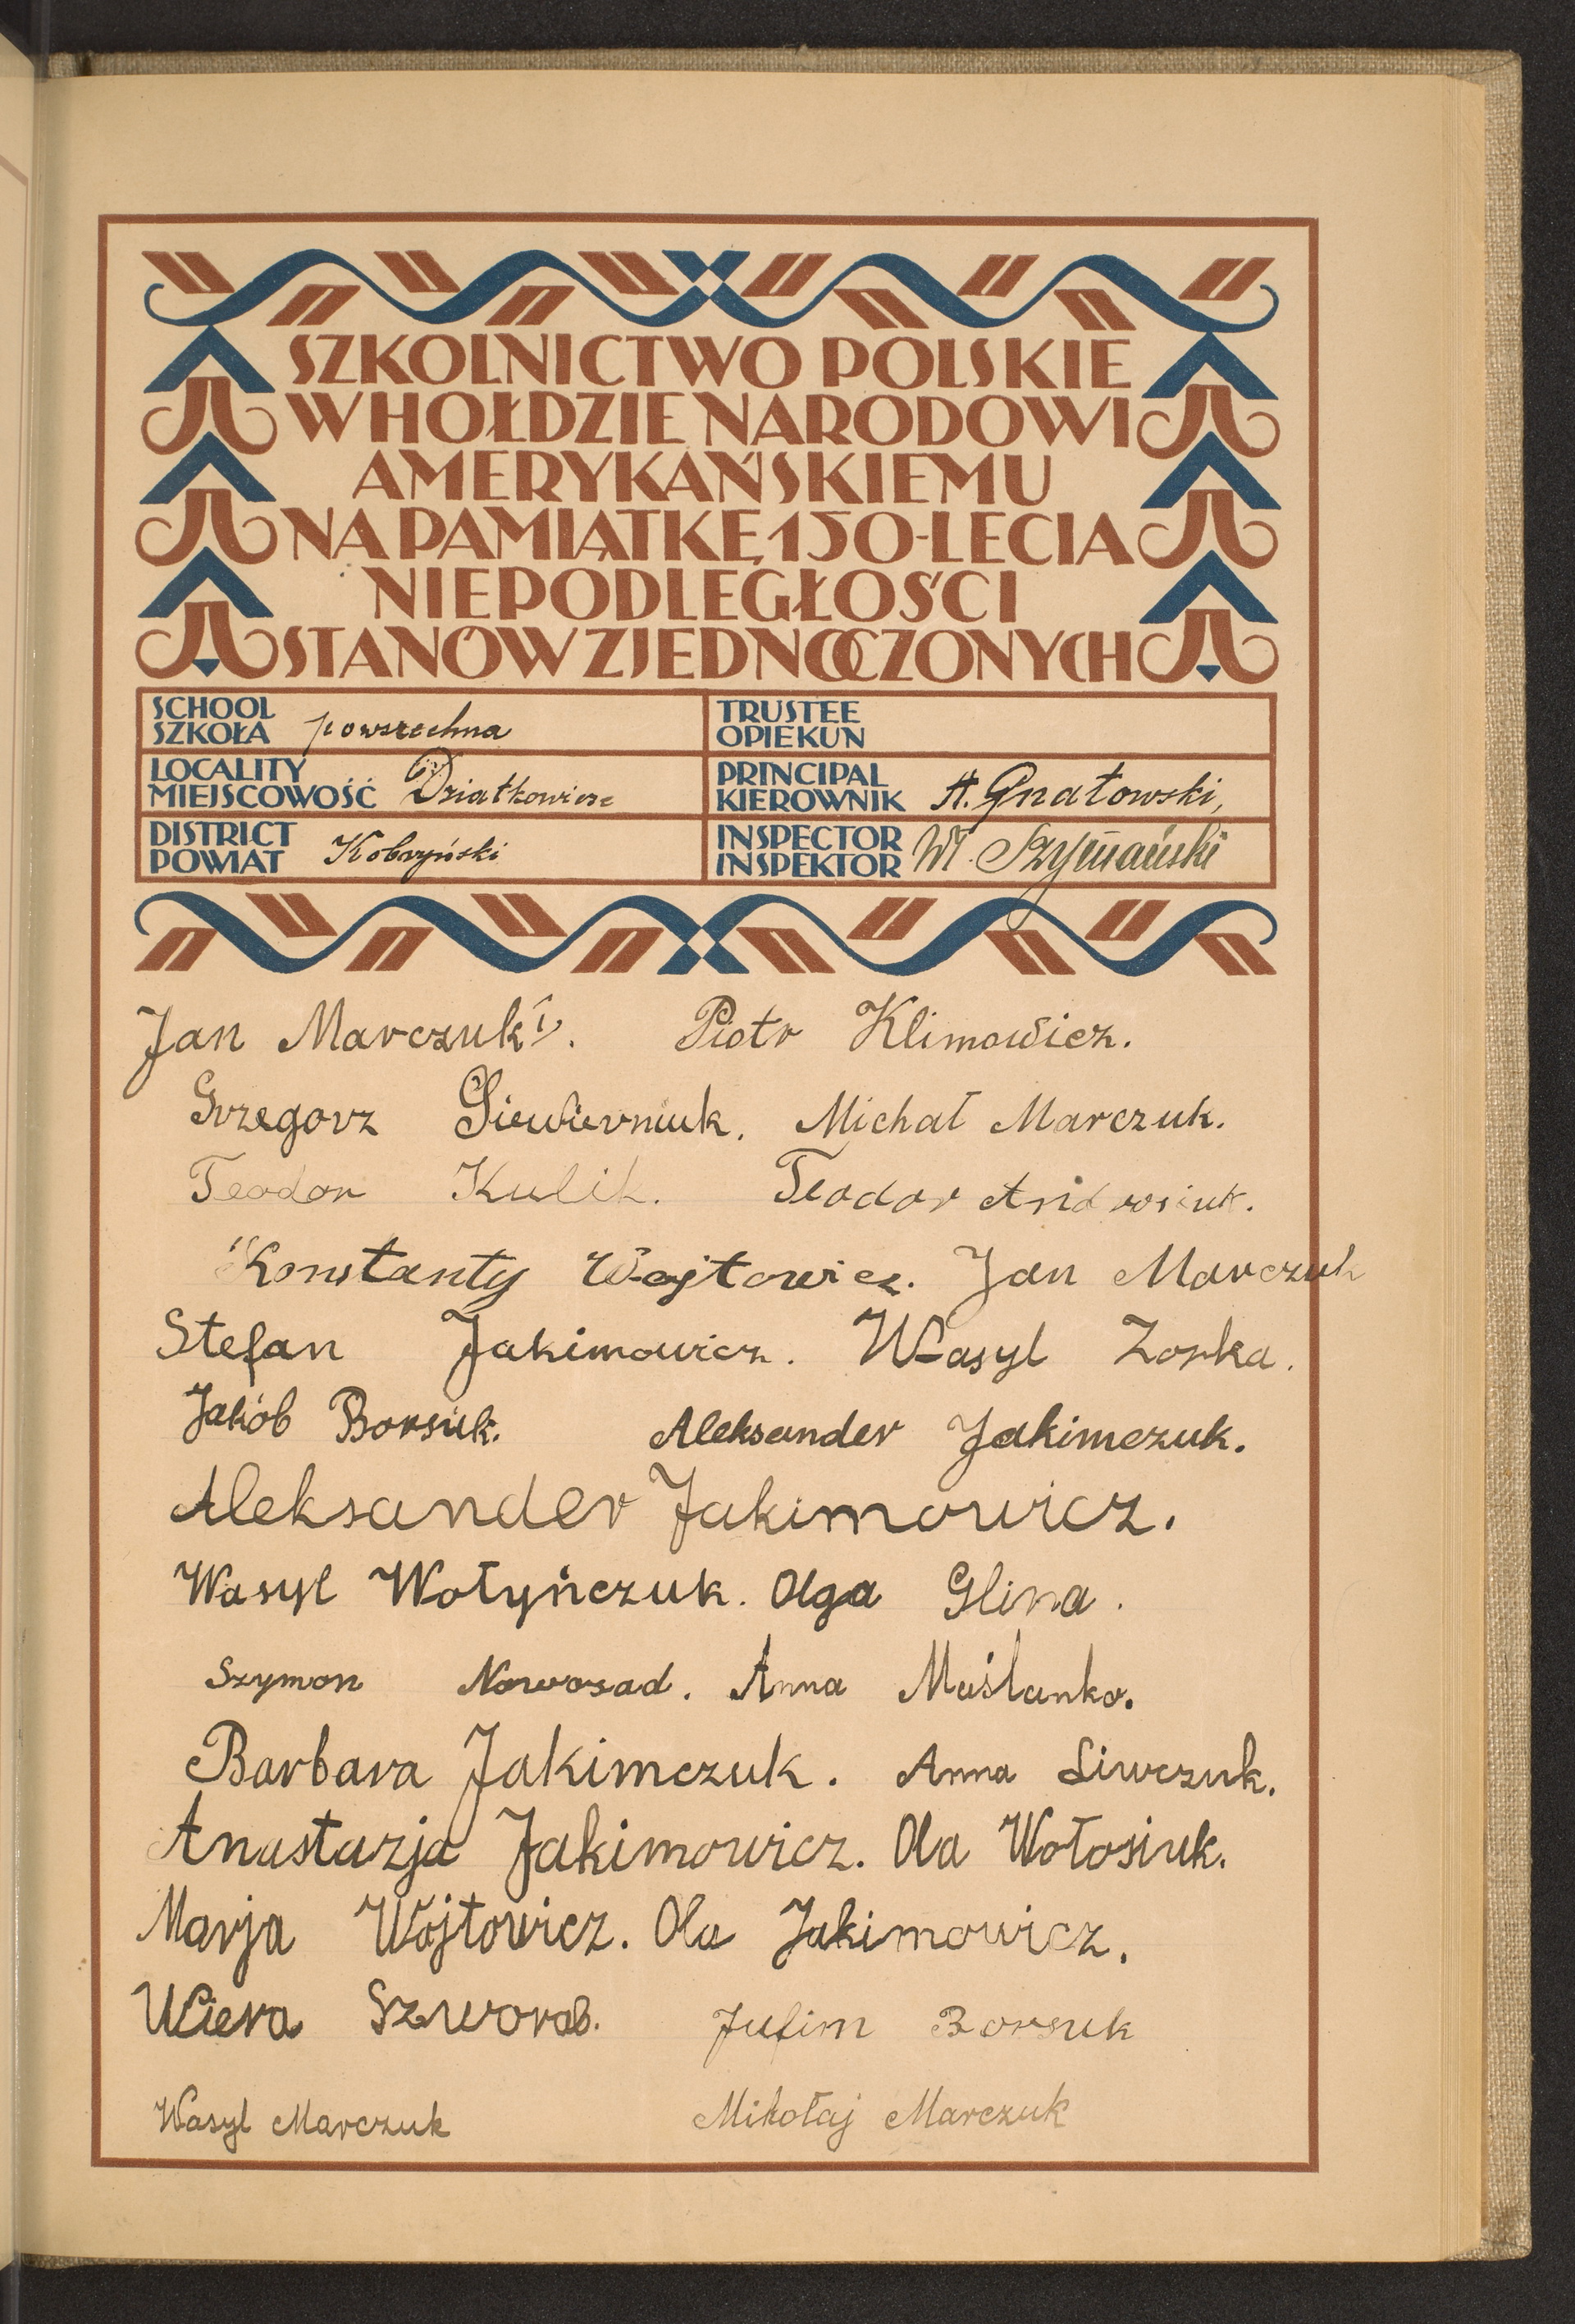 SZKOLNICTWO POLSKIE
W HOŁDZIE NARODOWI
AMERYKAŃSKIEMU
NA PAMIĄTKĘ 150-LECIA
NIEPODLEGŁOŚCI
STANÓW ZJEDNOCZONYCH
SCHOOL
SZKOŁA powszechna
TRUSTEE
OPIEKUN
LOCALITY
MIEJSCOWOŚĆ Dziatkowicze
PRINCIPAL
KIEROWNIK A. Gnatowski,
DISTRICT
POWIAT Kobryński
INSPECTOR
INSPEKTOR Wł. Szymański
Jan Marczuk I. Piotr Klimowicz.
Grzegorz Siewierniuk. Michał Marczuk.
Teodor Kulik. Teodor Androsiuk.
Konstanty Wojtowicz. Jan Marczuk
Stefan Jakimowicz. Wasyl Zorka.
Jakób Borsuk. Aleksander Jakimczuk.
Aleksander Jakimowicz.
Wasyl Wołyńczuk. Olga Glina.
Szymon Nowosad. Anna Maślanko.
Barbara Jakimczuk. Anna Liwczuk.
Anastazja Jakimowicz. Ola Wołosiuk.
Marja Wojtowicz. Ola Jakimowicz.
Wiera Szworob. Jufim Borsuk
Wasyl Marczuk Mikołaj Marczuk